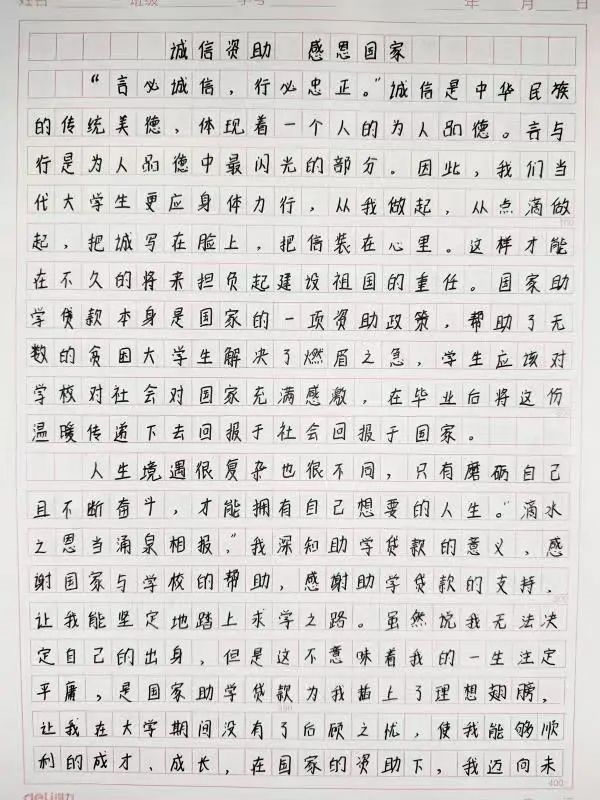 姓名 班级 学号 年 月 日
诚信资助 感恩国家
“言必诚信，行必忠正。”诚信是中华民族
的传统美德，体现着一个人的为人品德。言与
行是为人品德中最闪光的部分。因此，我们当
代大学生更应身体力行，从我做起，从点滴做
起，把诚写在脸上，把信装在心里。这样才能
在不久的将来担负起建设祖国的重任。国家助
学贷款本身是国家的一项资助政策，帮助了无
数的贫困大学生解决了燃眉之急，学生应该对
学校对社会对国家充满感激，在毕业后将这份
温暖传递下去回报于社会回报于国家。
人生境遇很复杂也很不同，只有磨砺自己
且不断奋斗，才能拥有自己想要的人生。“滴水
之恩当涌泉相报，”我深知助学贷款的意义，感
谢国家与学校的帮助，感谢助学贷款的支持，
让我能坚定地踏上求学之路。虽然说我无法决
定自己的出身，但是这不意味着我的一生注定
平庸，是国家助学贷款为我插上了理想翅膀，
让我在大学期间没有了后顾之忧，使我能够顺
利的成才、成长，在国家的资助下，我迈向未
100
200
300
400
deli得力